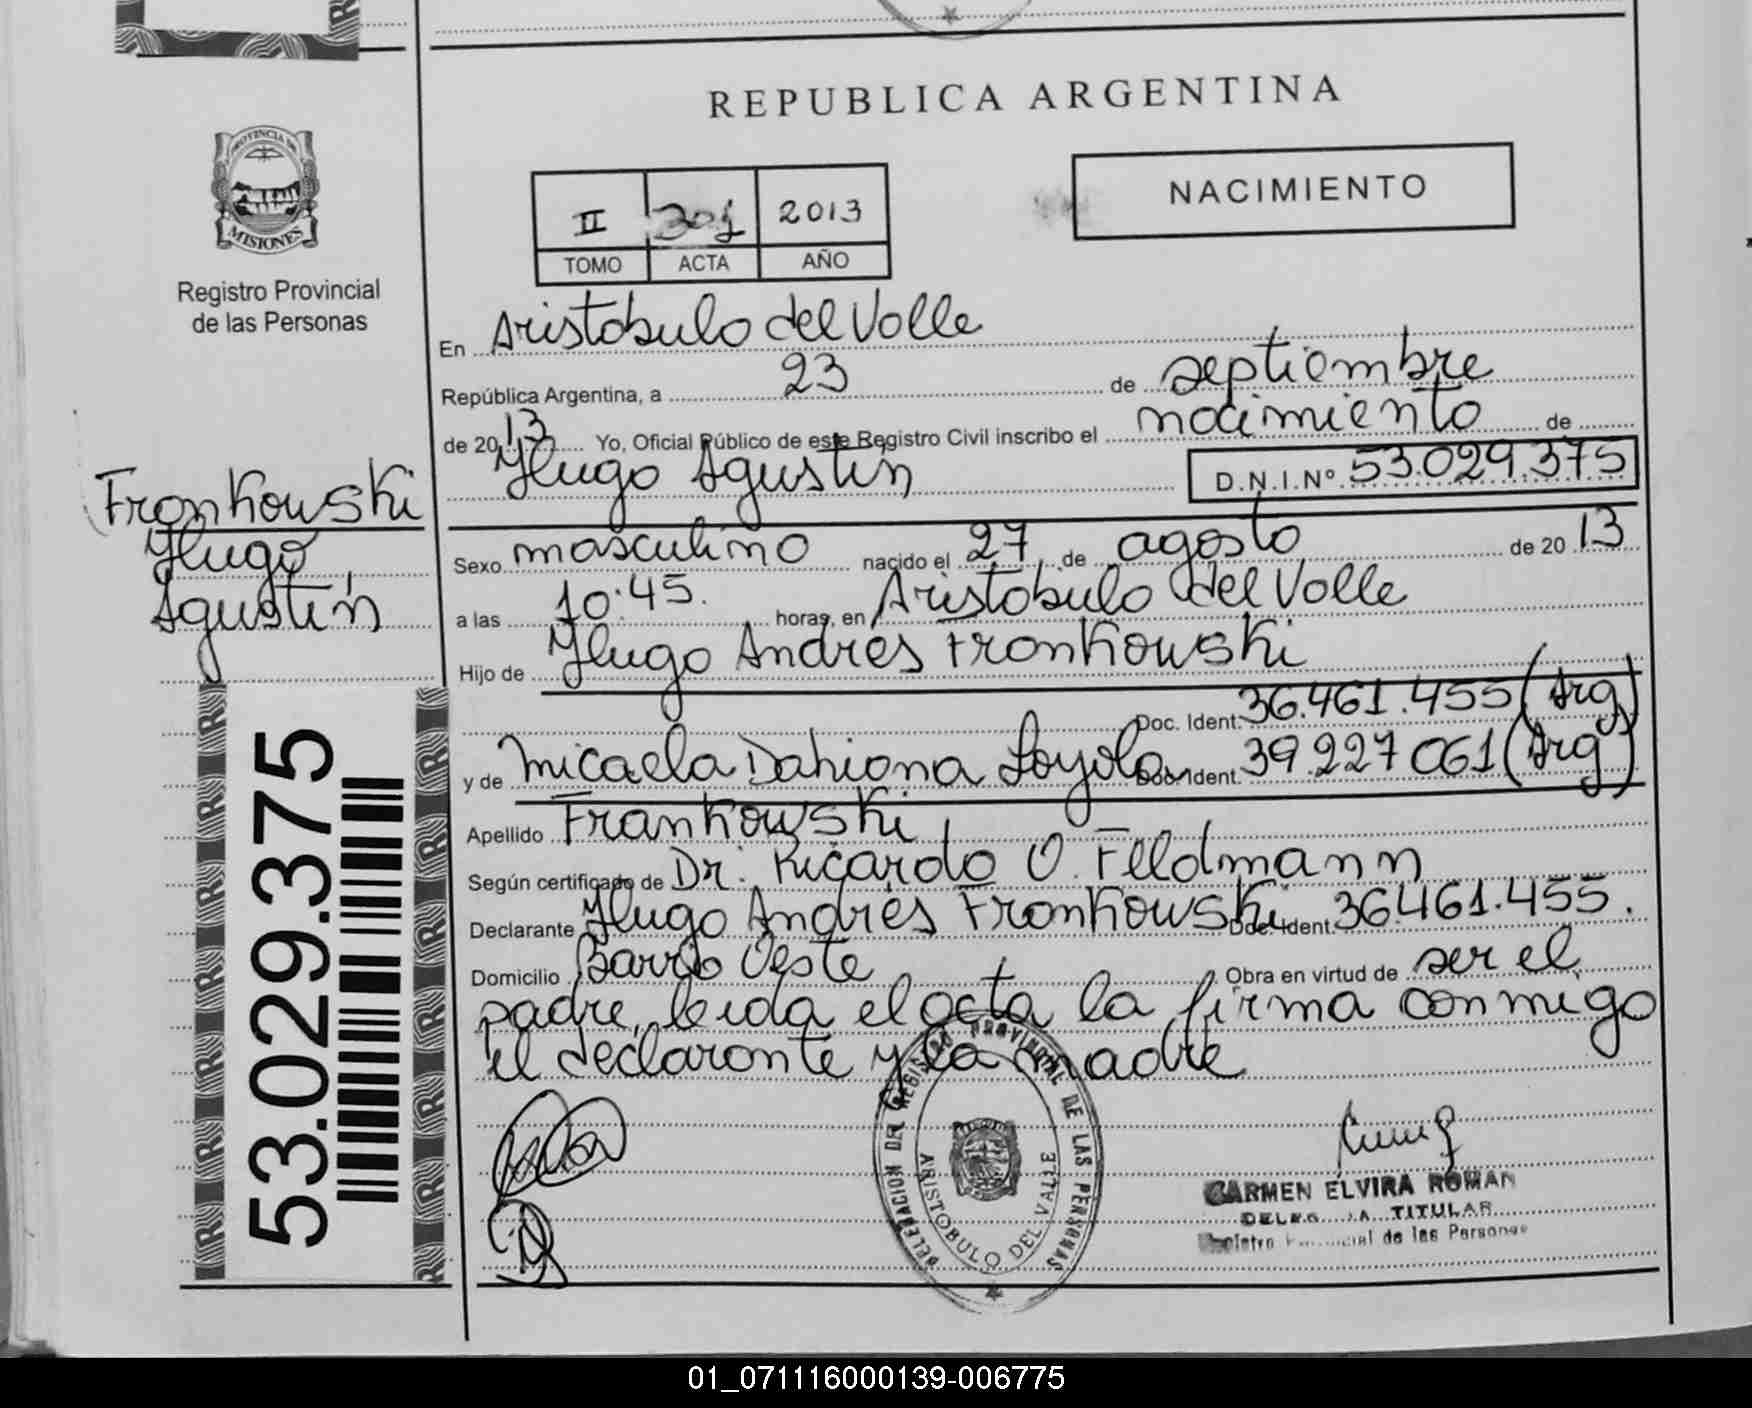 REPUBLICA ARGENTINA
PROVINCIA DE
MISIONES
Registro Provincial
de las Personas
NACIMIENTO
II 2013
TOMO ACTA AÑO
En Aristobulo del Valle
República Argentina, a 23 de septiembre
de 2013 Yo, Oficial Público de este Registro Civil inscribo el nacimiento de
Hugo Agustín D.N.I.Nº 53.029.375
Frankowski
Hugo
Agustín
Sexo masculino nacido el 27 de agosto de 2013
a las 10:45. horas, en Aristobulo del Valle
Hijo de Hugo Andres Frankowski
Doc. Ident. 36.461.455 (Arg)
y de Micaela Dahiana Loyola Doc. Ident. 39.227.061 (Arg)
Apellido Frankowski
Según certificado de Dr. Ricardo O. Feldmann
Declarante Hugo Andres Frankowski Doc. Ident. 36.461.455.
Domicilio Barrio Oeste Obra en virtud de ser el
padre, leida el acta la firma conmigo
el declarante y la madre
53.029.375
DELEGACION DEL REGISTRO PROVINCIAL DE LAS PERSONAS
ARISTOBULO DEL VALLE
CARMEN ELVIRA ROMAN
TITULAR
de las Personas
01_071116000139-006775